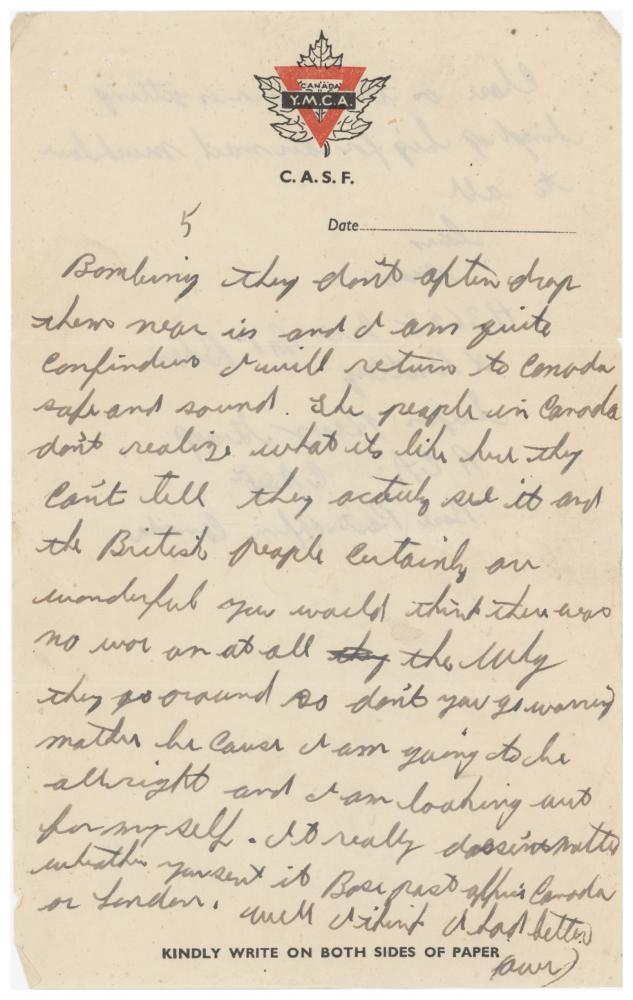 CANADA
Y.M.C.A.
C.A.S.F.
5
Date
Bombing they don't often drop
them near us and I am quite
confindend I will return to Canada
safe and sound. The people in Canada
don't realize what its like but they
can't tell they actuly see it and
the British people certainly are
wonderful you would think there was
no war on at all they the way
they go around so don't you go worring
mother because I am going to be
allright and I am looking out
for my self. It really doesint matter
wheather you sent it Base post office Canada
or London. well I think I had better
KINDLY WRITE ON BOTH SIDES OF PAPER
(over)